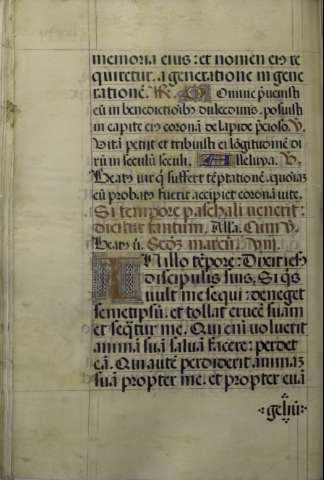 memoria eius: et nomen ei⁹ re
quiretur. a generatione in gene
rationē. ℟. Domine p̄uenisti
eū in benedictiōib⁹ dulcedinis. posuisti
in capite ei⁹ coronā de lapide p̄cioso. ℣.
Vitā petiit et tribuisti ei lōgitudinē di
erū in seculū seculi. Alleluya. ℣.
Beat⁹ uir q̄ suffert tēptationē. quoiā cū
probat⁹ fuerit accipiet coronā uite.
Si tempore paschali uenerit:
dicitur tantum. Alla. Cum ℣.
Beat⁹ ū. Secd̄3 marcū. viij.
In illo tēpore: Dixit iesus
discipulis suis, Si q̄s
uult me sequi: deneget
semetipsū. et tollat crucē suam
et seq̄tur me. Qui enī uoluerit
animā suā saluā facere: perdet
eā. Qui autē perdiderit animā
suā propter me. et propter euā
geliū